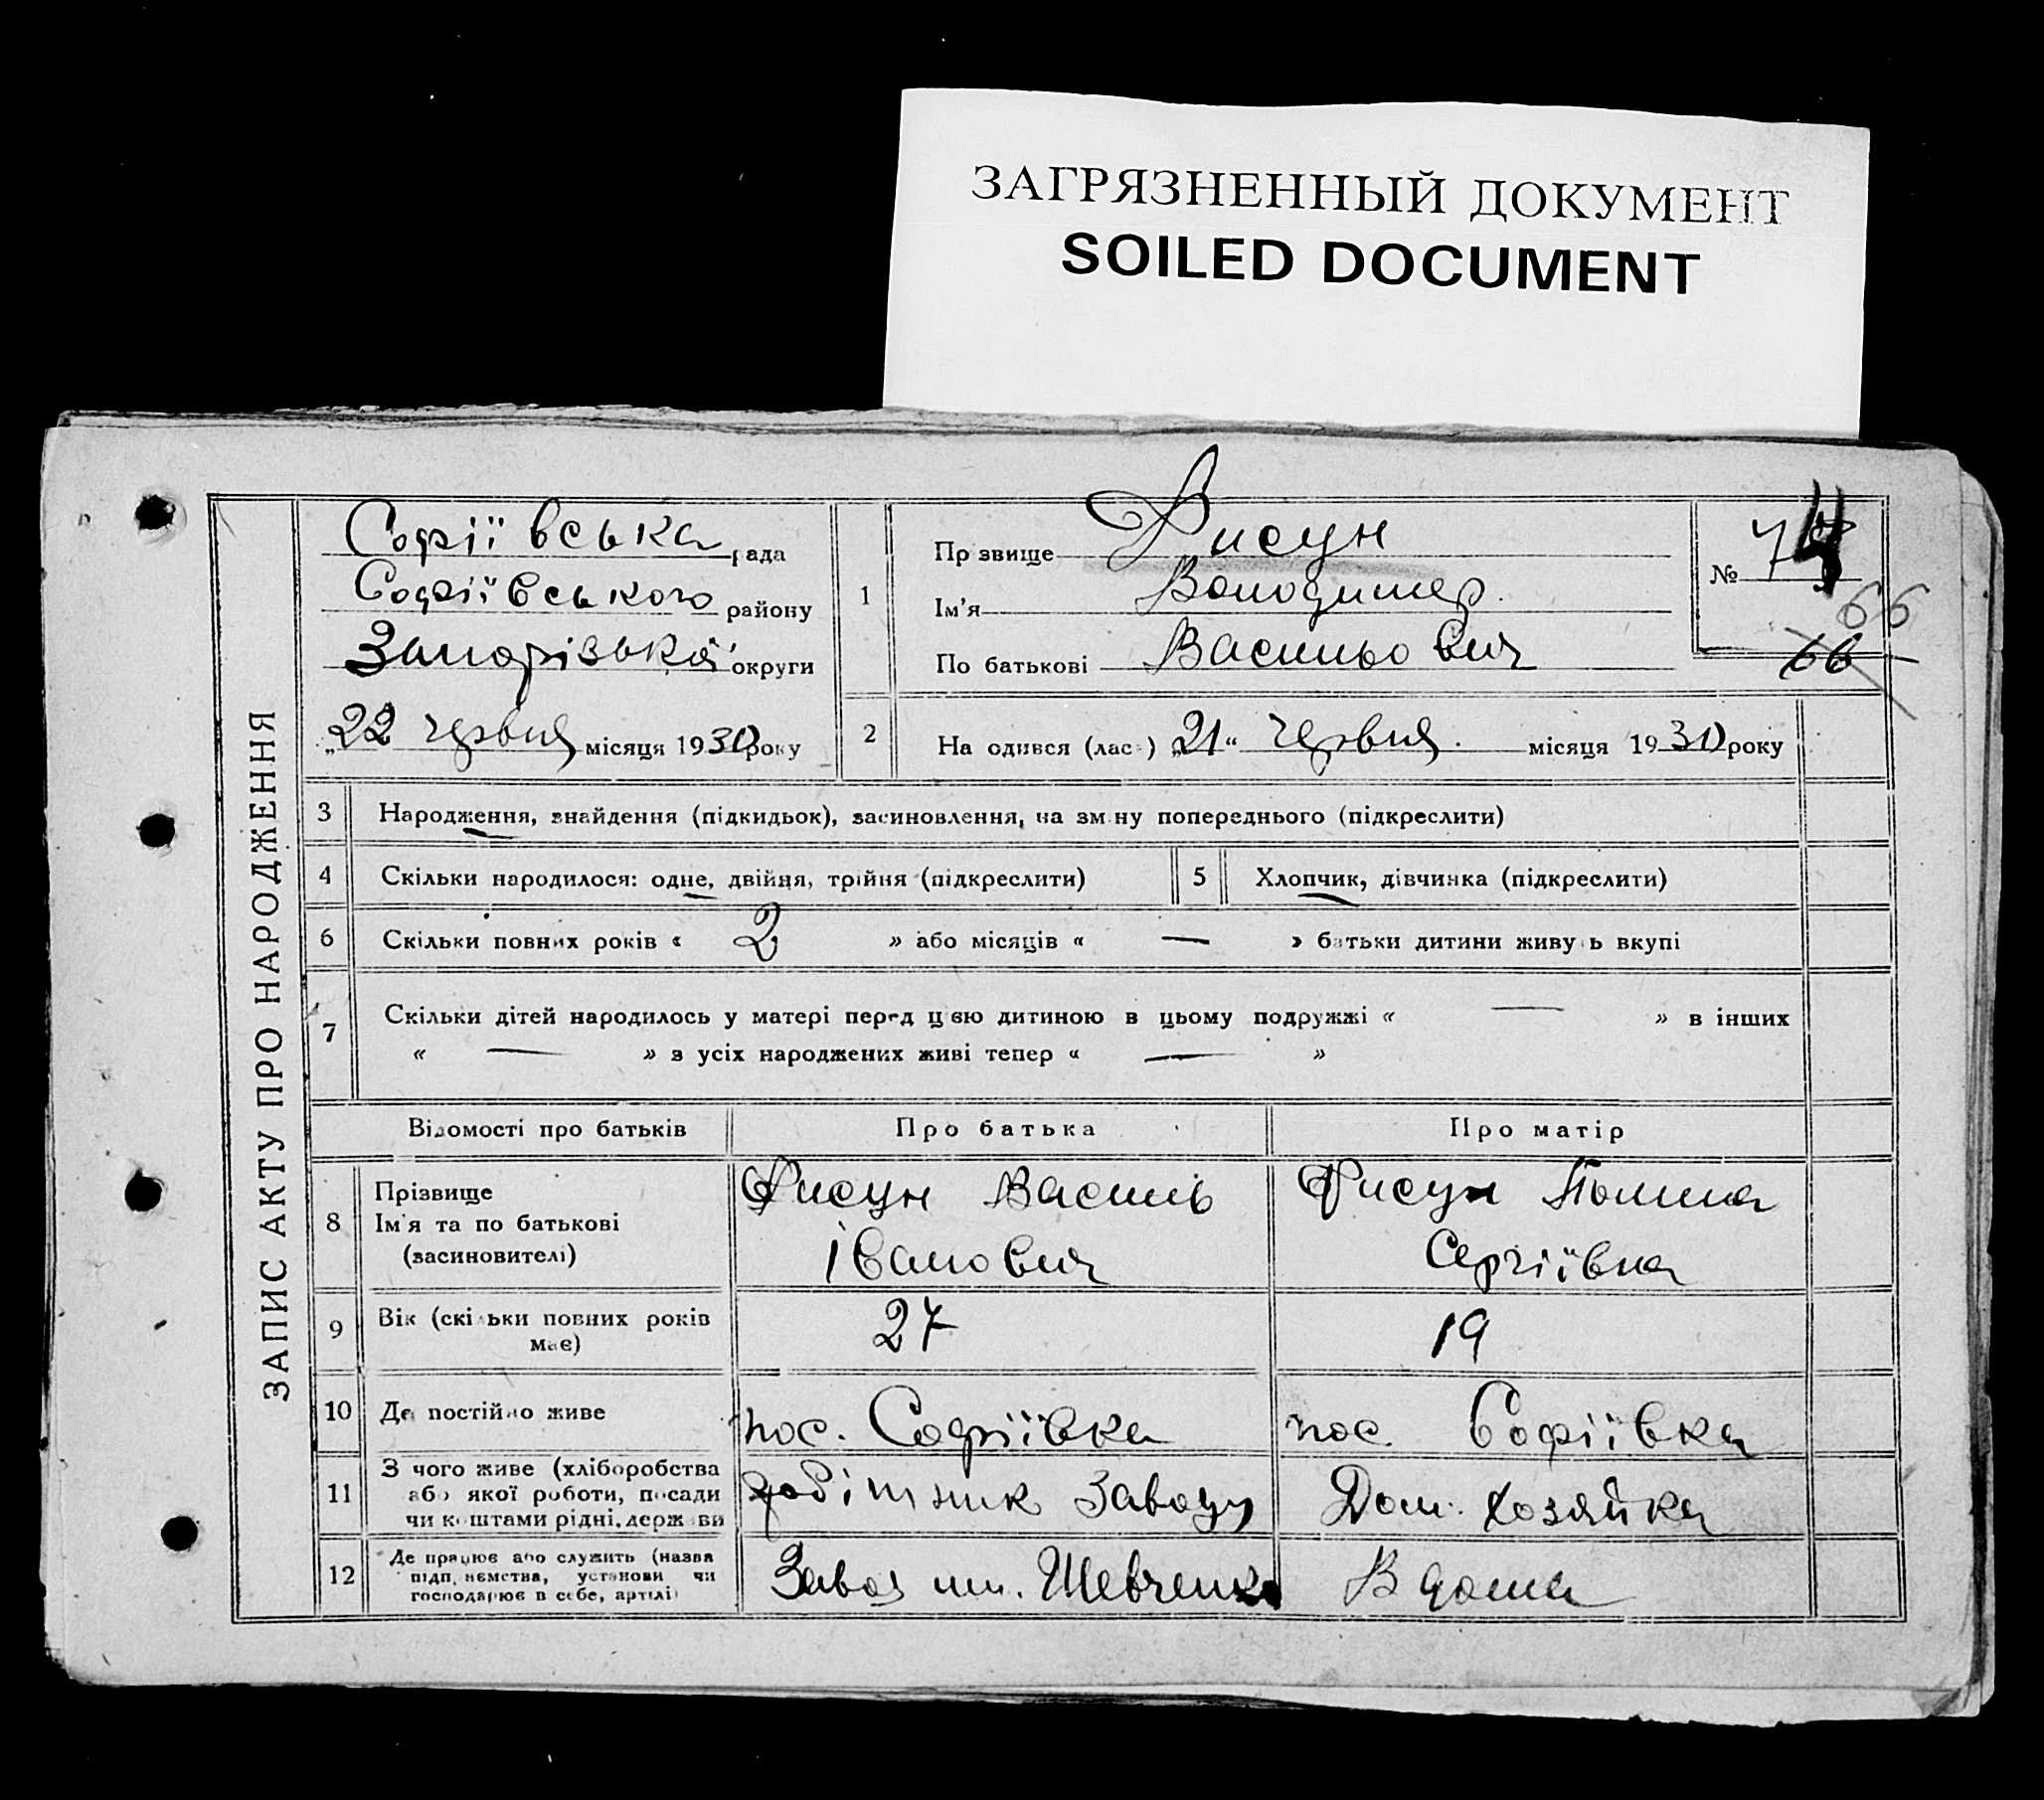 ЗАГРЯЗНЕННЫЙ ДОКУМЕНТ
SOILED DOCUMENT
ЗАПИС АКТУ ПРО НАРОДЖЕННЯ
Софіївська рада
Софіївського району
Запорізької округи
„22 червня місяця 1930 року
1
Прізвище Фисун
Ім'я Володимер
По батькові Васильович
№ 74
66
66
2 На одився (лас ) „21“ червня місяця 1930 року
3 Народження, знайдення (підкидьок), засиновлення, на зм ну попереднього (підкреслити)
4 Скільки народилося: одне, двійня, трійня (підкреслити)
5 Хлопчик, дівчинка (підкреслити)
6 Скільки повних років « 2 » або місяців « — » батьки дитини живу ь вкупі
7 Скільки дітей народилось у матері перед цією дитиною в цьому подружжі « — » в інших
« — » з усіх народжених живі тепер « — »
Відомості про батьків Про батька Про матір
8 Прізвище
Ім'я та по батькові
(засиновителі)
Фисун Василь
Іванович
Фисун
Сергіївна
9 Вік (скільки повних років
має)
27
19
10 Де постійно живе
пос. Софіївка
пос. Софіївка
11 З чого живе (хліборобства
або якої роботи, посади
чи коштами рідні, держави
робітник заводу
Дом. хозяйка
12 Де працює або служить (назва
підп ємства, установи чи
господарює в себе, артілі)
Завод им. Шевченка
В дома